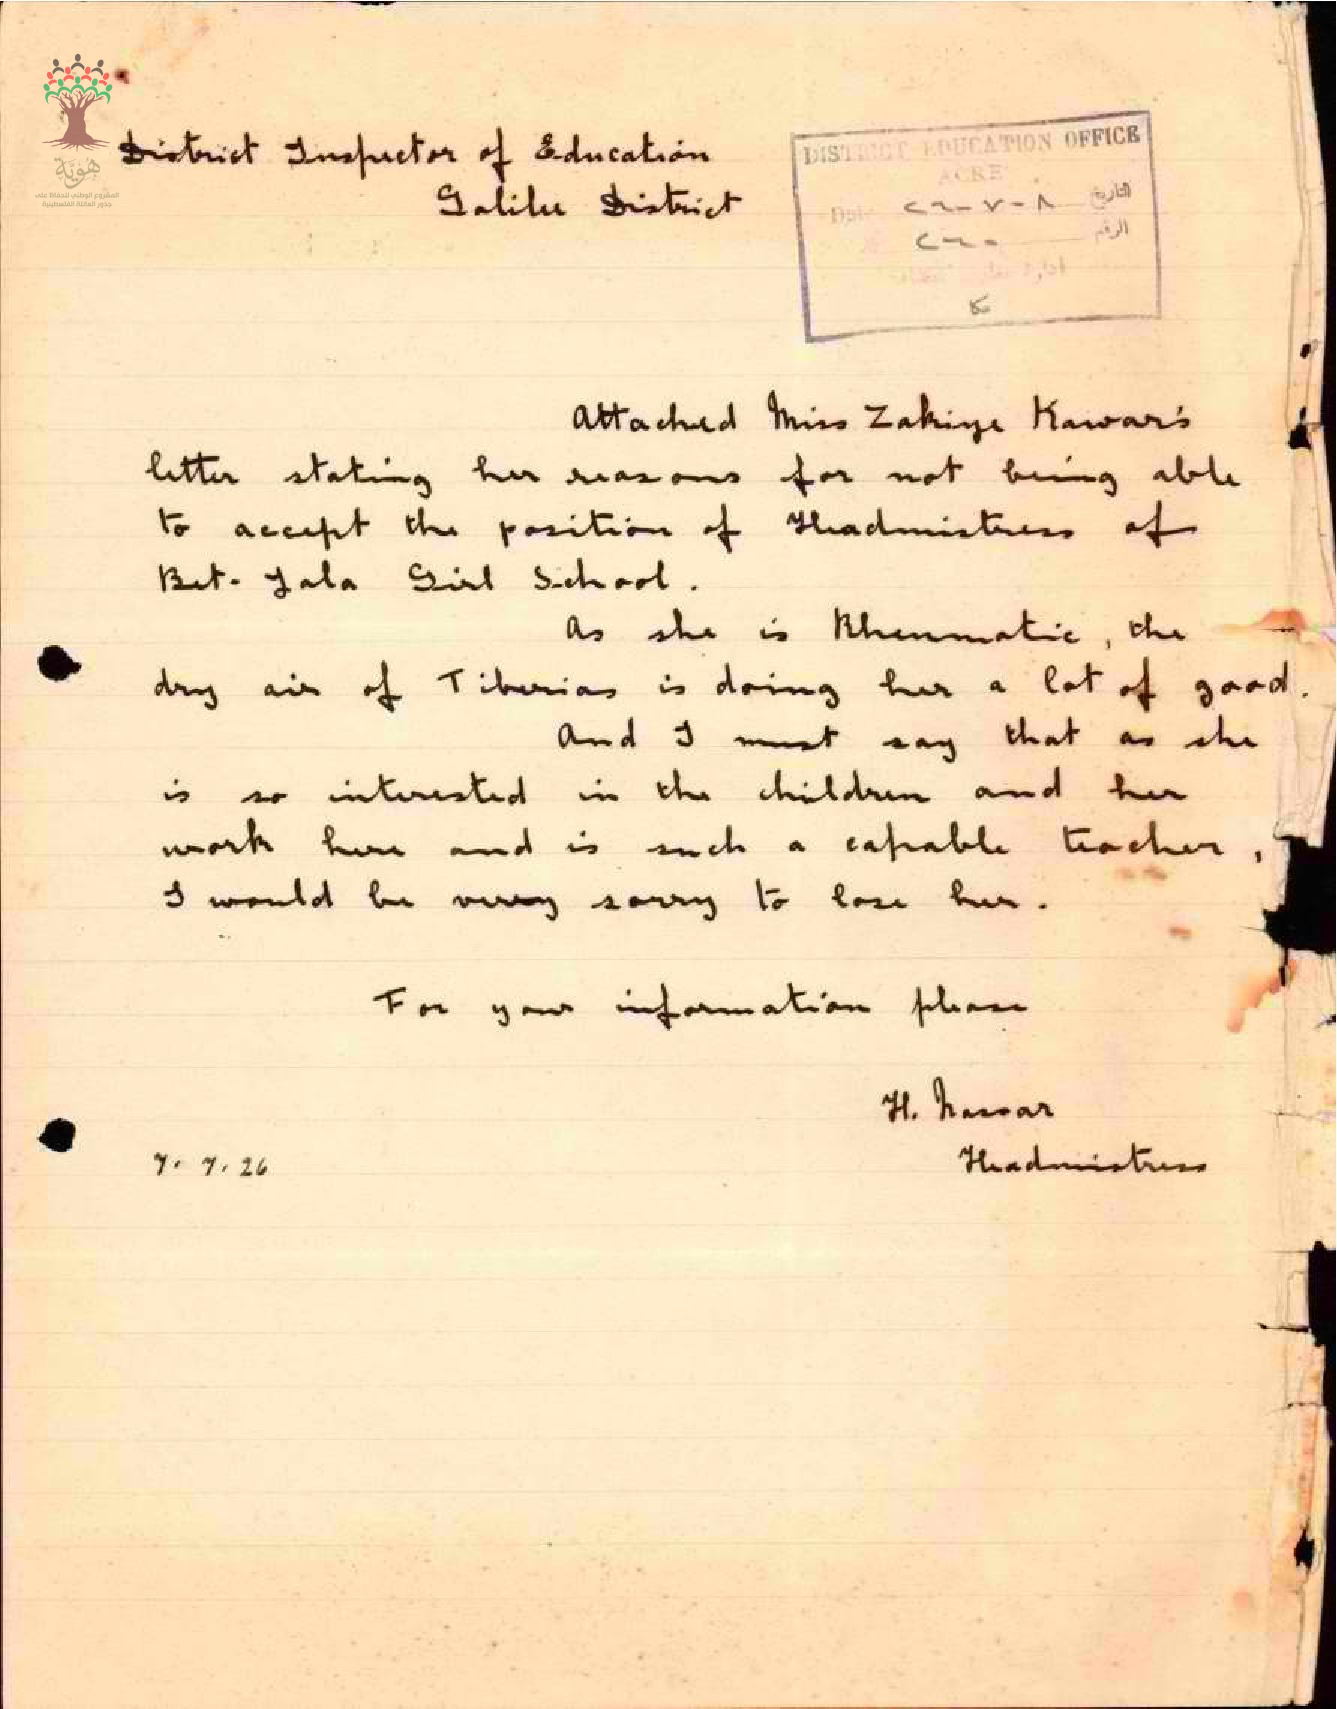 هَوِيَّة
المشروع الوطني للحفاظ على
جذور العائلة الفلسطينية
District Inspector of Education
Galilee District
DISTRICT EDUCATION OFFICE
ACRE
Date ٢٦-٧-٨ التاريخ
٢٦٠ الرقم
Attached Miss Zakiye Kawar's
letter stating her reasons for not being able
to accept the position of Headmistress of
Bet-Jala Girl School.
As she is Rheumatic, the
dry air of Tiberias is doing her a lot of good.
And I must say that as she
is so interested in the children and her
work here and is such a capable teacher,
I would be very sorry to lose her.
For your information please
H. Nassar
7. 7. 26 Headmistress